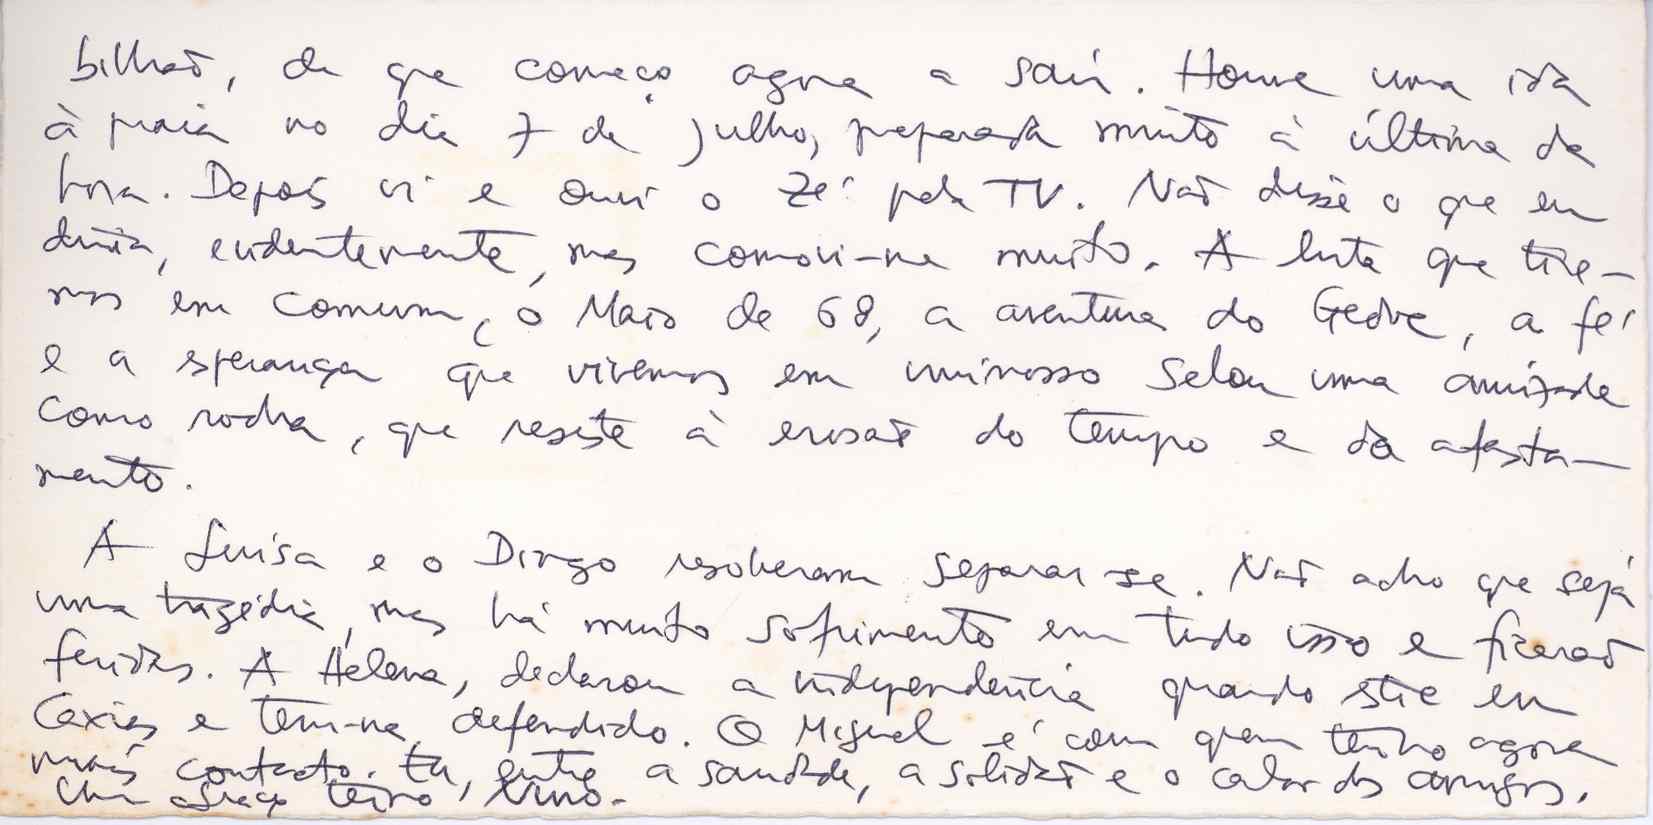 bilhão, de que começo agora a sair. Houve uma ida
à praia no dia 7 de Julho, preparada muito à última da
hora. Depois vi e ouvi o Zé pela TV. Não disse o que eu
diria, evidentemente, mas comovi-me muito. A luta que tive-
mos em comum, o Maio de 68, a aventura do Gedoc, a fé
e a sperança que vivemos em uníssono selou uma amizade
como rocha, que resiste à erosão do tempo e do afasta-
mento.
A Luisa e o Diogo resolveram separar-se. Não acho que seja
uma tragédia, mas há muito sofrimento em tudo isso e ficarão
feridas. A Helena, declarou a independência quando stive em
Caxias e tem-na defendido. O Miguel é com quem tenho agora
mais contacto. Eu, entre a saudade, a solidão e o calor dos amigos.
Um abraço terno, Nuno.